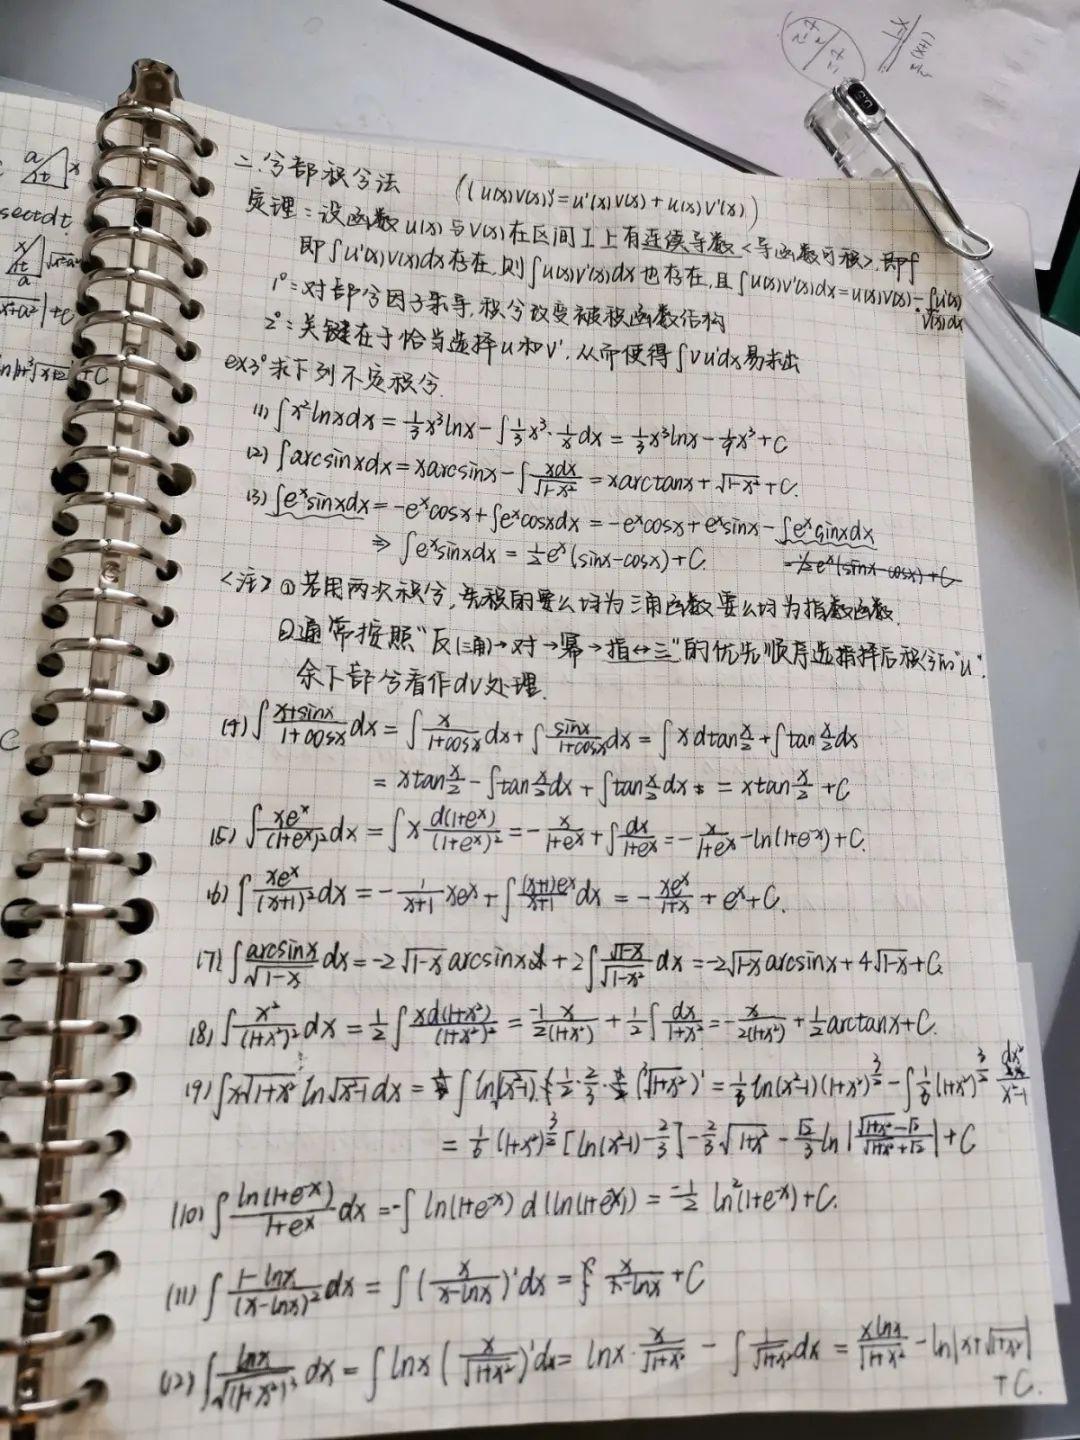 a x
t
sectdt
x
t
a
+C
C
二.分部积分法 ((u(x)v(x))'=u'(x)v(x)+u(x)v'(x))
定理:设函数u(x)与v(x)在区间I上有连续导数<导函数可积>.即∫
即∫u'(x)v(x)dx存在.则∫u(x)v'(x)dx也存在,且∫u(x)v'(x)dx=u(x)v(x)-∫u'(x)v(x)dx
1°:对部分因子求导.积分改变被积函数结构
2°:关键在于恰当选择u和v'.从而使得∫vu'dx易求出
ex3°求下列不定积分.
(1)∫x²lnxdx=1/3x³lnx-∫1/3x³·1/xdx=1/3x³lnx-1/9x³+C
(2)∫arcsinxdx=xarcsinx-∫xdx/√(1-x²)=xarctanx+√(1-x²)+C.
(3)∫eˣsinxdx=-eˣcosx+∫eˣcosxdx=-eˣcosx+eˣsinx-∫eˣsinxdx
⇒∫eˣsinxdx=1/2eˣ(sinx-cosx)+C. =1/2eˣ(sinx-cosx)+C
<注>①若用两次积分,先积的要么均为三角函数要么均为指数函数.
②通常按照"反(三角)→对→幂→指↔三"的优先顺序选择后积分的"u".
余下部分看作dv处理.
(4)∫(x+sinx)/(1+cosx)dx=∫x/(1+cosx)dx+∫sinx/(1+cosx)dx=∫xdtanx/2+∫tanx/2dx
=xtanx/2-∫tanx/2dx+∫tanx/2dx=xtanx/2+C
(5)∫xeˣ/(1+eˣ)²dx=∫x d(1+eˣ)/(1+eˣ)²=-x/(1+eˣ)+∫dx/(1+eˣ)=-x/(1+eˣ)-ln(1+e⁻ˣ)+C.
(6)∫xeˣ/(x+1)²dx=-1/(x+1)xeˣ+∫(x+1)eˣ/(x+1)dx=-xeˣ/(1+x)+eˣ+C.
(7)∫arcsinx/√(1-x)dx=-2√(1-x)arcsinx+2∫√(1-x)/√(1-x²)dx=-2√(1-x)arcsinx+4√(1-x)+C.
(8)∫x²/(1+x²)²dx=1/2∫xd(1+x²)/(1+x²)²=-1/2x/(1+x²)+1/2∫dx/(1+x²)=-x/2(1+x²)+1/2arctanx+C.
(9)∫x√(1+x²)ln√(x²-1)dx=∫ln(x²-1)·(1/2·2/3·1/2(√(1+x²))³)'=1/6ln(x²-1)(1+x²)^(3/2)-∫1/6(1+x²)^(3/2)dx²/(x²-1)
=1/6(1+x²)^(3/2)[ln(x²-1)-2/3]-2/3√(1+x²)-√2/3ln|(√(1+x²)-√2)/(√(1+x²)+√2)|+C
(10)∫ln(1+e⁻ˣ)/(1+eˣ)dx=-∫ln(1+e⁻ˣ)d(ln(1+e⁻ˣ))=-1/2ln²(1+e⁻ˣ)+C.
(11)∫(1-lnx)/(x-lnx)²dx=∫(x/(x-lnx))'dx=x/(x-lnx)+C
(12)∫lnx/√(1+x²)³dx=∫lnx(x/√(1+x²))'dx=lnx·x/√(1+x²)-∫1/√(1+x²)dx=xlnx/√(1+x²)-ln|x+√(1+x²)|
+C.